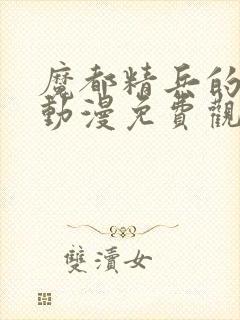 魔都精兵的
動漫免費觀
雙瀆女